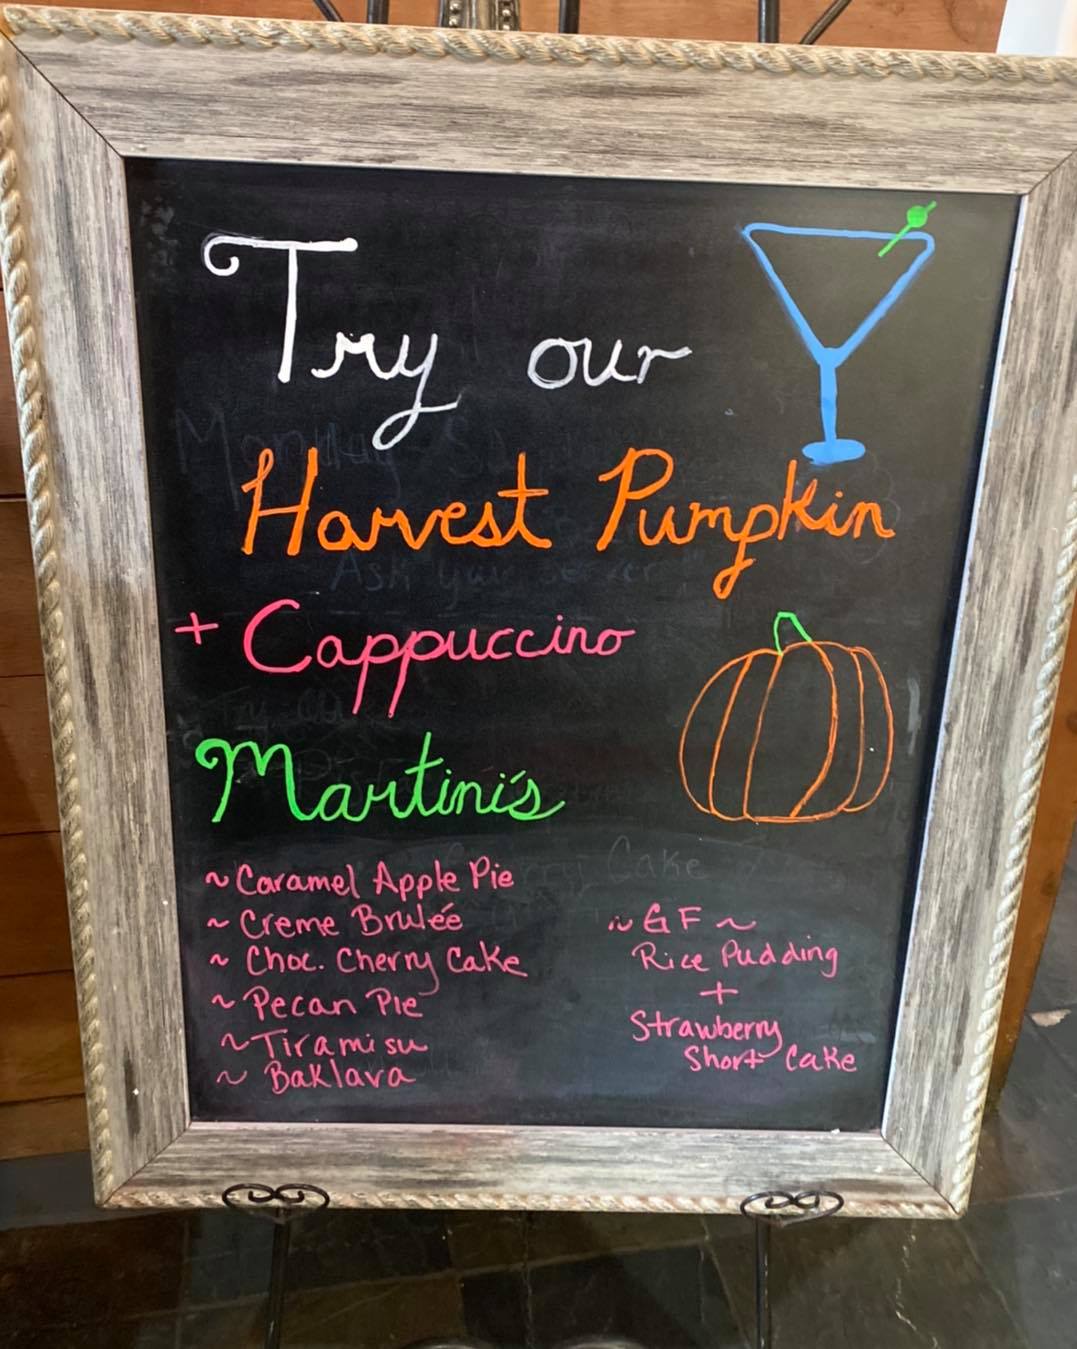 Try our
Harvest Pumpkin
+ Cappuccino
Martini's
~ Caramel Apple Pie
~ Creme Brulée
~ Choc. Cherry Cake
~ Pecan Pie
~ Tiramisu
~ Baklava
~ GF ~
Rice Pudding
+
Strawberry
Short Cake
Ask your server
Cake